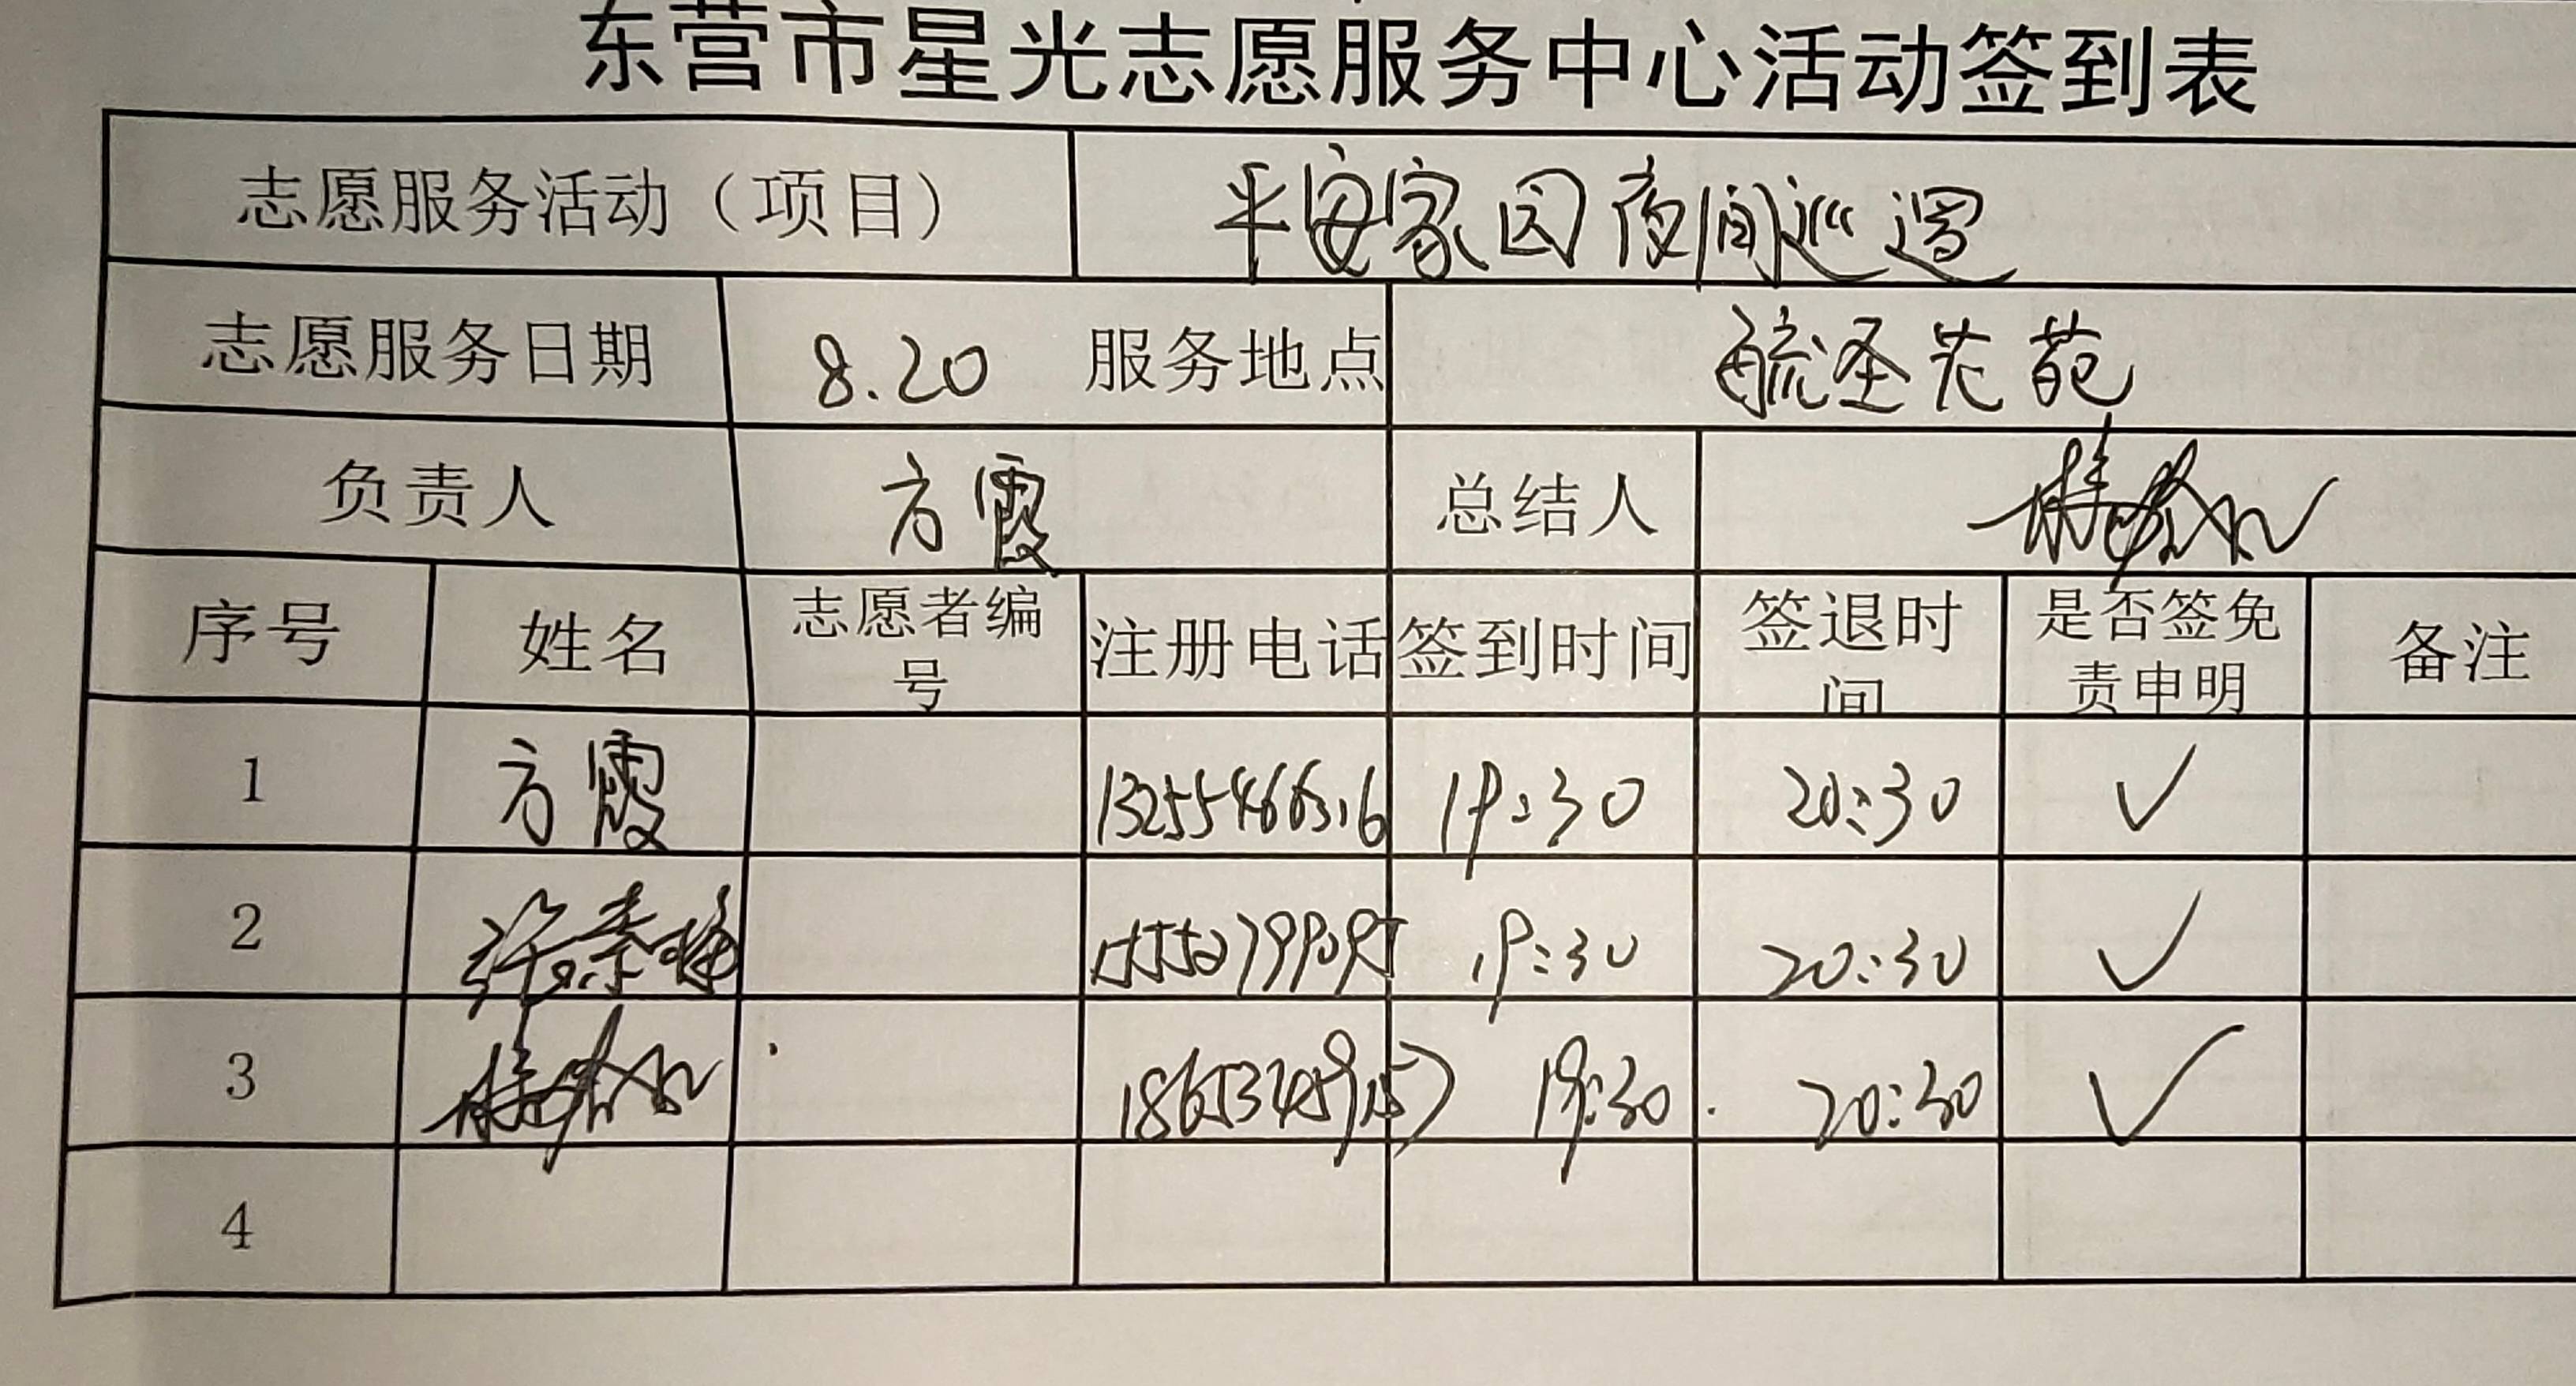 东营市星光志愿服务中心活动签到表
志愿服务活动（项目） 平安家园夜间巡逻
志愿服务日期 8.20 服务地点 毓圣花苑
负责人 方霞 总结人
序号 姓名 志愿者编号 注册电话 签到时间 签退时间 是否签免责申明 备注
1 方霞 13255466316 19:30 20:30 ✓
2 19:30 20:30 ✓
3 19:30 20:30 ✓
4